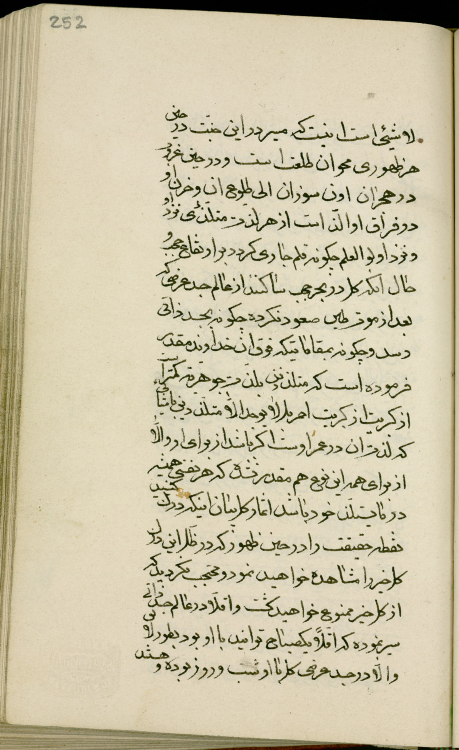 252
لاشیئی است اینست که میر در این جنت در حین
هر ظهوری محو ان طلعت است و در حین غروب
در هجران اون سوزان الی طلوع ان و حزن او
در فراق او الذ است از هر لذت متلذذی نزد او
و نزد اولو العلم چگونه قلم جاری گردد بر ارتفاع حجب و
حال انکه کل در بحر حجب ساکنند از عالم جسد عرضی که
بعد از موت طین صعود نکرده چگونه بجسد ذاتی
رسد و چگونه بمقاماتیکه فوق ان خداوند مقدر
فرموده است که متلذذ نمی شود جوهریه کمتر است
از کبریت احمر بل لا یوجد الا متلذذ
که لذت ان در عمر اوست اگر باشد از برای او والا
از برای همه این نوع هم مقدر نشده که هر نفسی همیشه
در غایت تلذذ خود باشد اثمار کل بیان اینکه درک کنید
نقطه حقیقت را در حین ظهور که در ظل این درک
کل خیر را مشاهده خواهید نمود و محتجب نگردید که
از کل خیر ممنوع خواهید گشت و اقلا در عالم جسد ذاتی
سیر نموده که اقلا یکصباح توانید با او بود بطور لا
والا در جسد عرضی کل با او شب و روز بوده و هستند